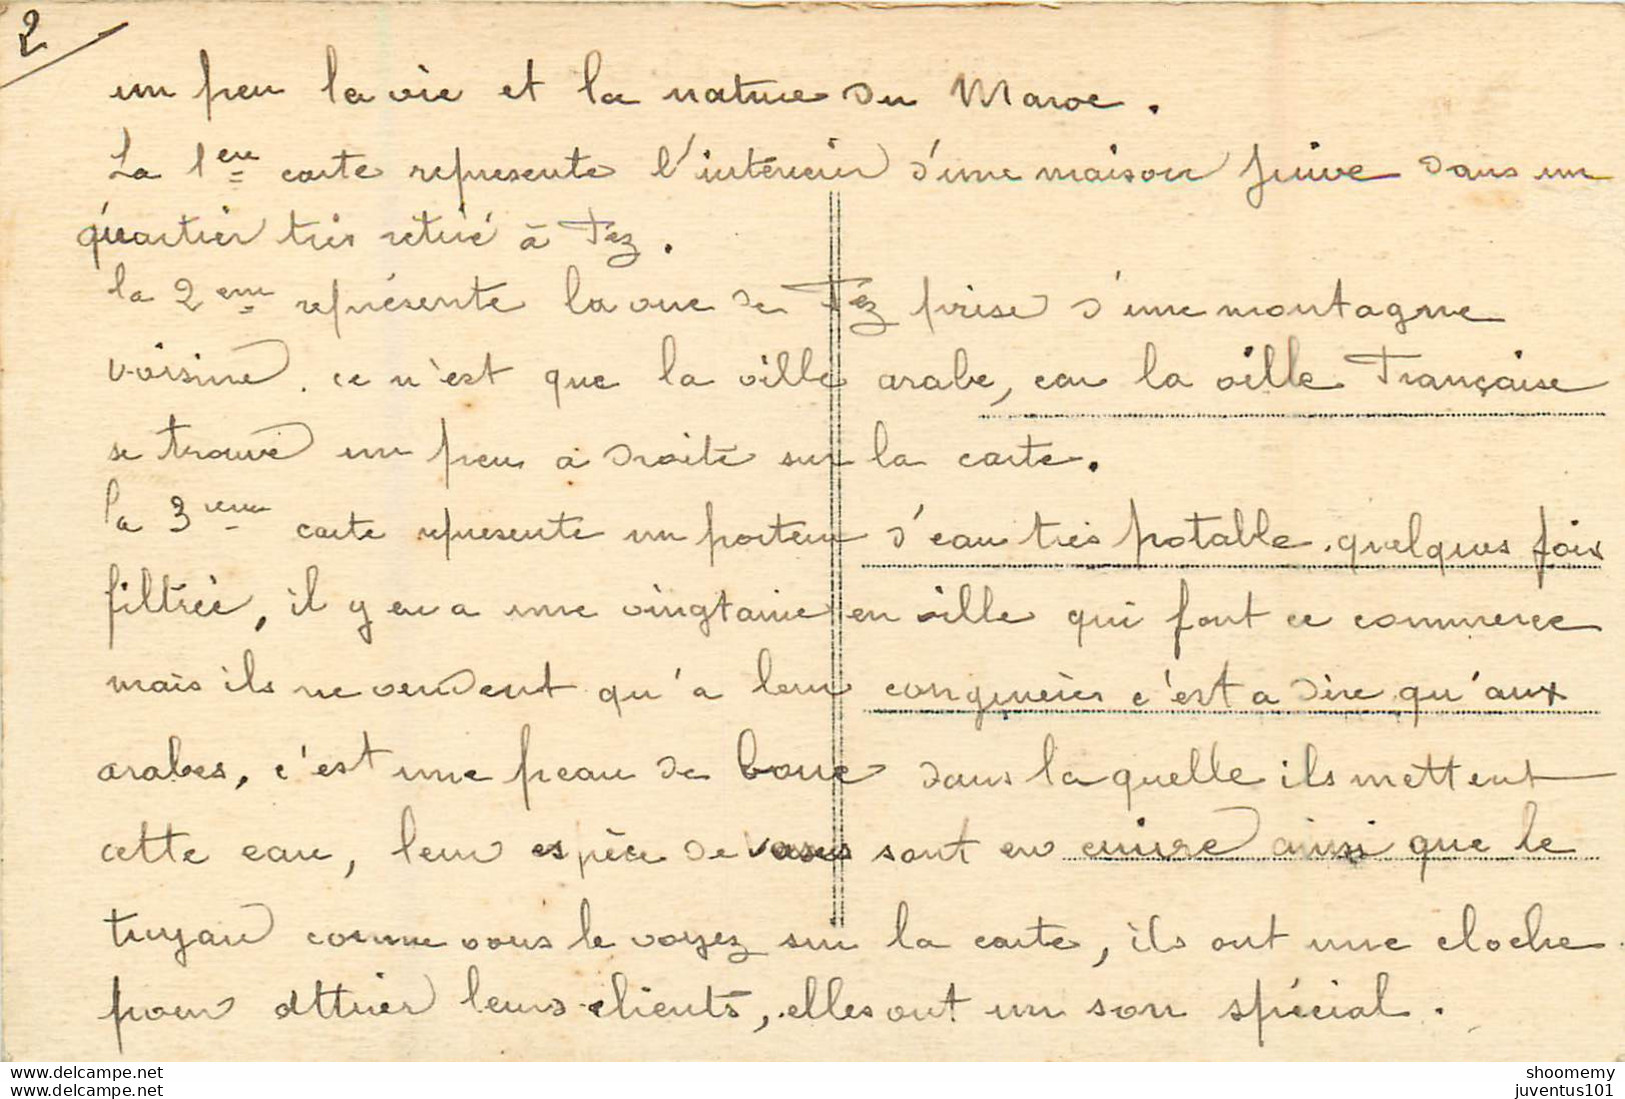 2
un peu la vie et la nature du Maroc.
La 1ere carte represente l'intérieur d'une maison juive dans un
quartier très retiré à Fez.
la 2eme représente la vue de Fez prise d'une montagne
voisine. ce n'est que la ville arabe, car la ville Française
se trouve un peu a droite sur la carte.
la 3eme carte represente un porteur d'eau très potable. quelques fois
filtrée, il y en a une vingtaine en ville qui font ce commerce
mais ils ne vendent qu'a leur congénères c'est a dire qu'aux
arabes, c'est une peau de bouc dans laquelle ils mettent
cette eau, leur espèce de vases sont en cuivre ainsi que le
tuyau comme vous le voyez sur la carte, ils ont une cloche
pour attirer leurs clients, elles ont un son spécial.
www.delcampe.net
www.delcampe.net
shoomemy
juventus101